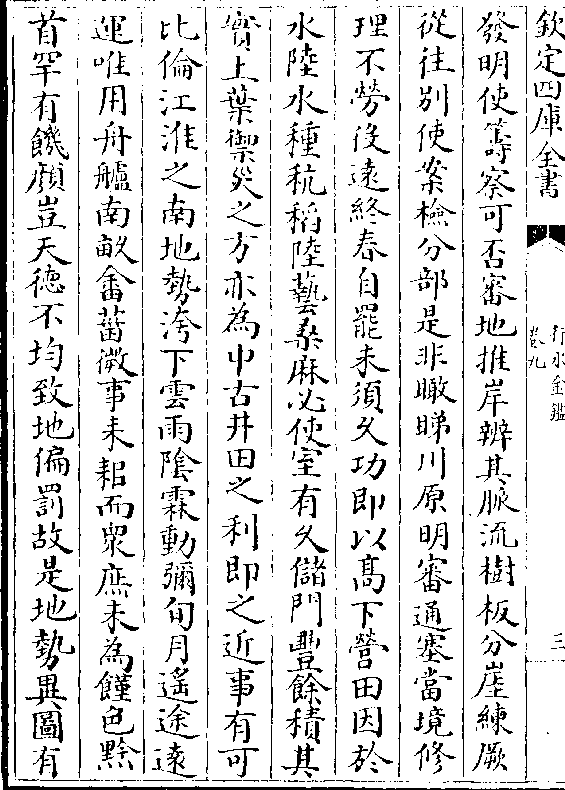 欽定四庫全書
行水金鑑
卷九
三
發明使籌察可否審地推岸辨其脈流樹板分崖練厥
從往別使案檢分部是非瞰睇川原明審通塞當境修
理不勞役遠終春自罷未須久功即以髙下營田因於
水陸水種秔稻陸藝桑麻必使室有久儲門豐餘積其
實上葉禦災之方亦為中古井田之利即之近事有可
比倫江淮之南地勢洿下雲雨隂霖動彌旬月遙途遠
運唯用舟艫南畝畬菑微事耒耜而衆庶未為饉色黔
首罕有饑顔豈天徳不均致地偏罰故是地勢異圖有